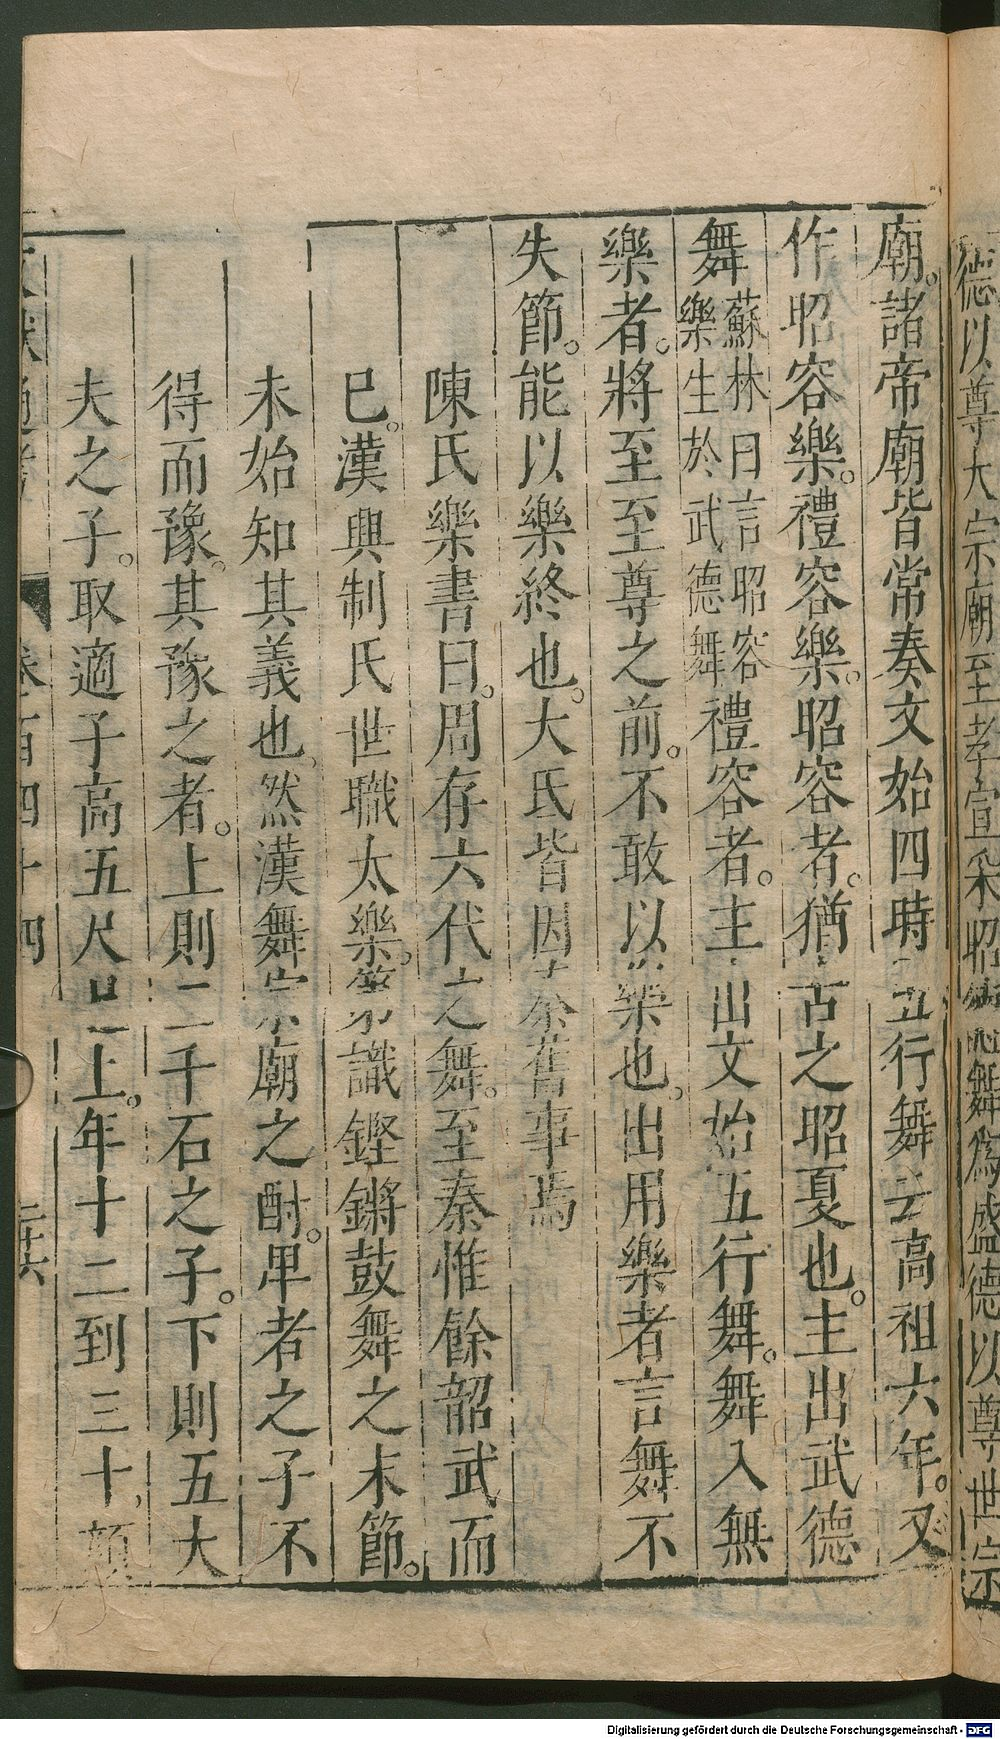 德以尊大宗廟至孝宣采昭德舞為盛德以尊世宗
廟。諸帝廟皆常奏文始四時五行舞云高祖六年。又
作昭容樂。禮容樂。昭容者。猶古之昭夏也。主出武德
舞蘇林曰言昭容
樂生於武德舞禮容者。主出文始五行舞。舞入無
樂者。將至至尊之前。不敢以樂也。出用樂者言舞不
失節。能以樂終也。大氐皆因秦舊事焉
陳氏樂書曰。周存六代之舞。至秦惟餘韶武而
已。漢興制氏世職太樂。第識鏗鏘鼓舞之末節。
未始知其義也。然漢舞宗廟之酎。卑者之子不
得而豫。其豫之者。上則二千石之子。下則五大
夫之子。取適子高五尺已上。年十二到三十，顏
文獻通考
卷百四十四
二十六
Digitalisierung gefördert durch die Deutsche Forschungsgemeinschaft - DFG